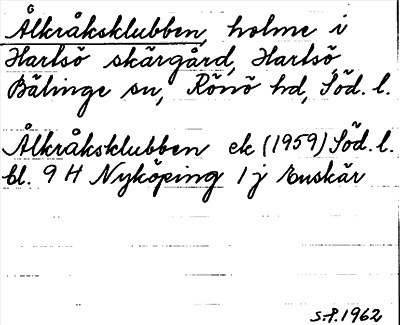 Ålkråksklubben, holme i
Hartsö skärgård, Hartsö,
Bälinge sn, Rönö hd, Söd. l.
Ålkråksklubben ek (1959) Söd. l.
bl. 9 H Nyköping 1 j Enskär
S.P. 1962